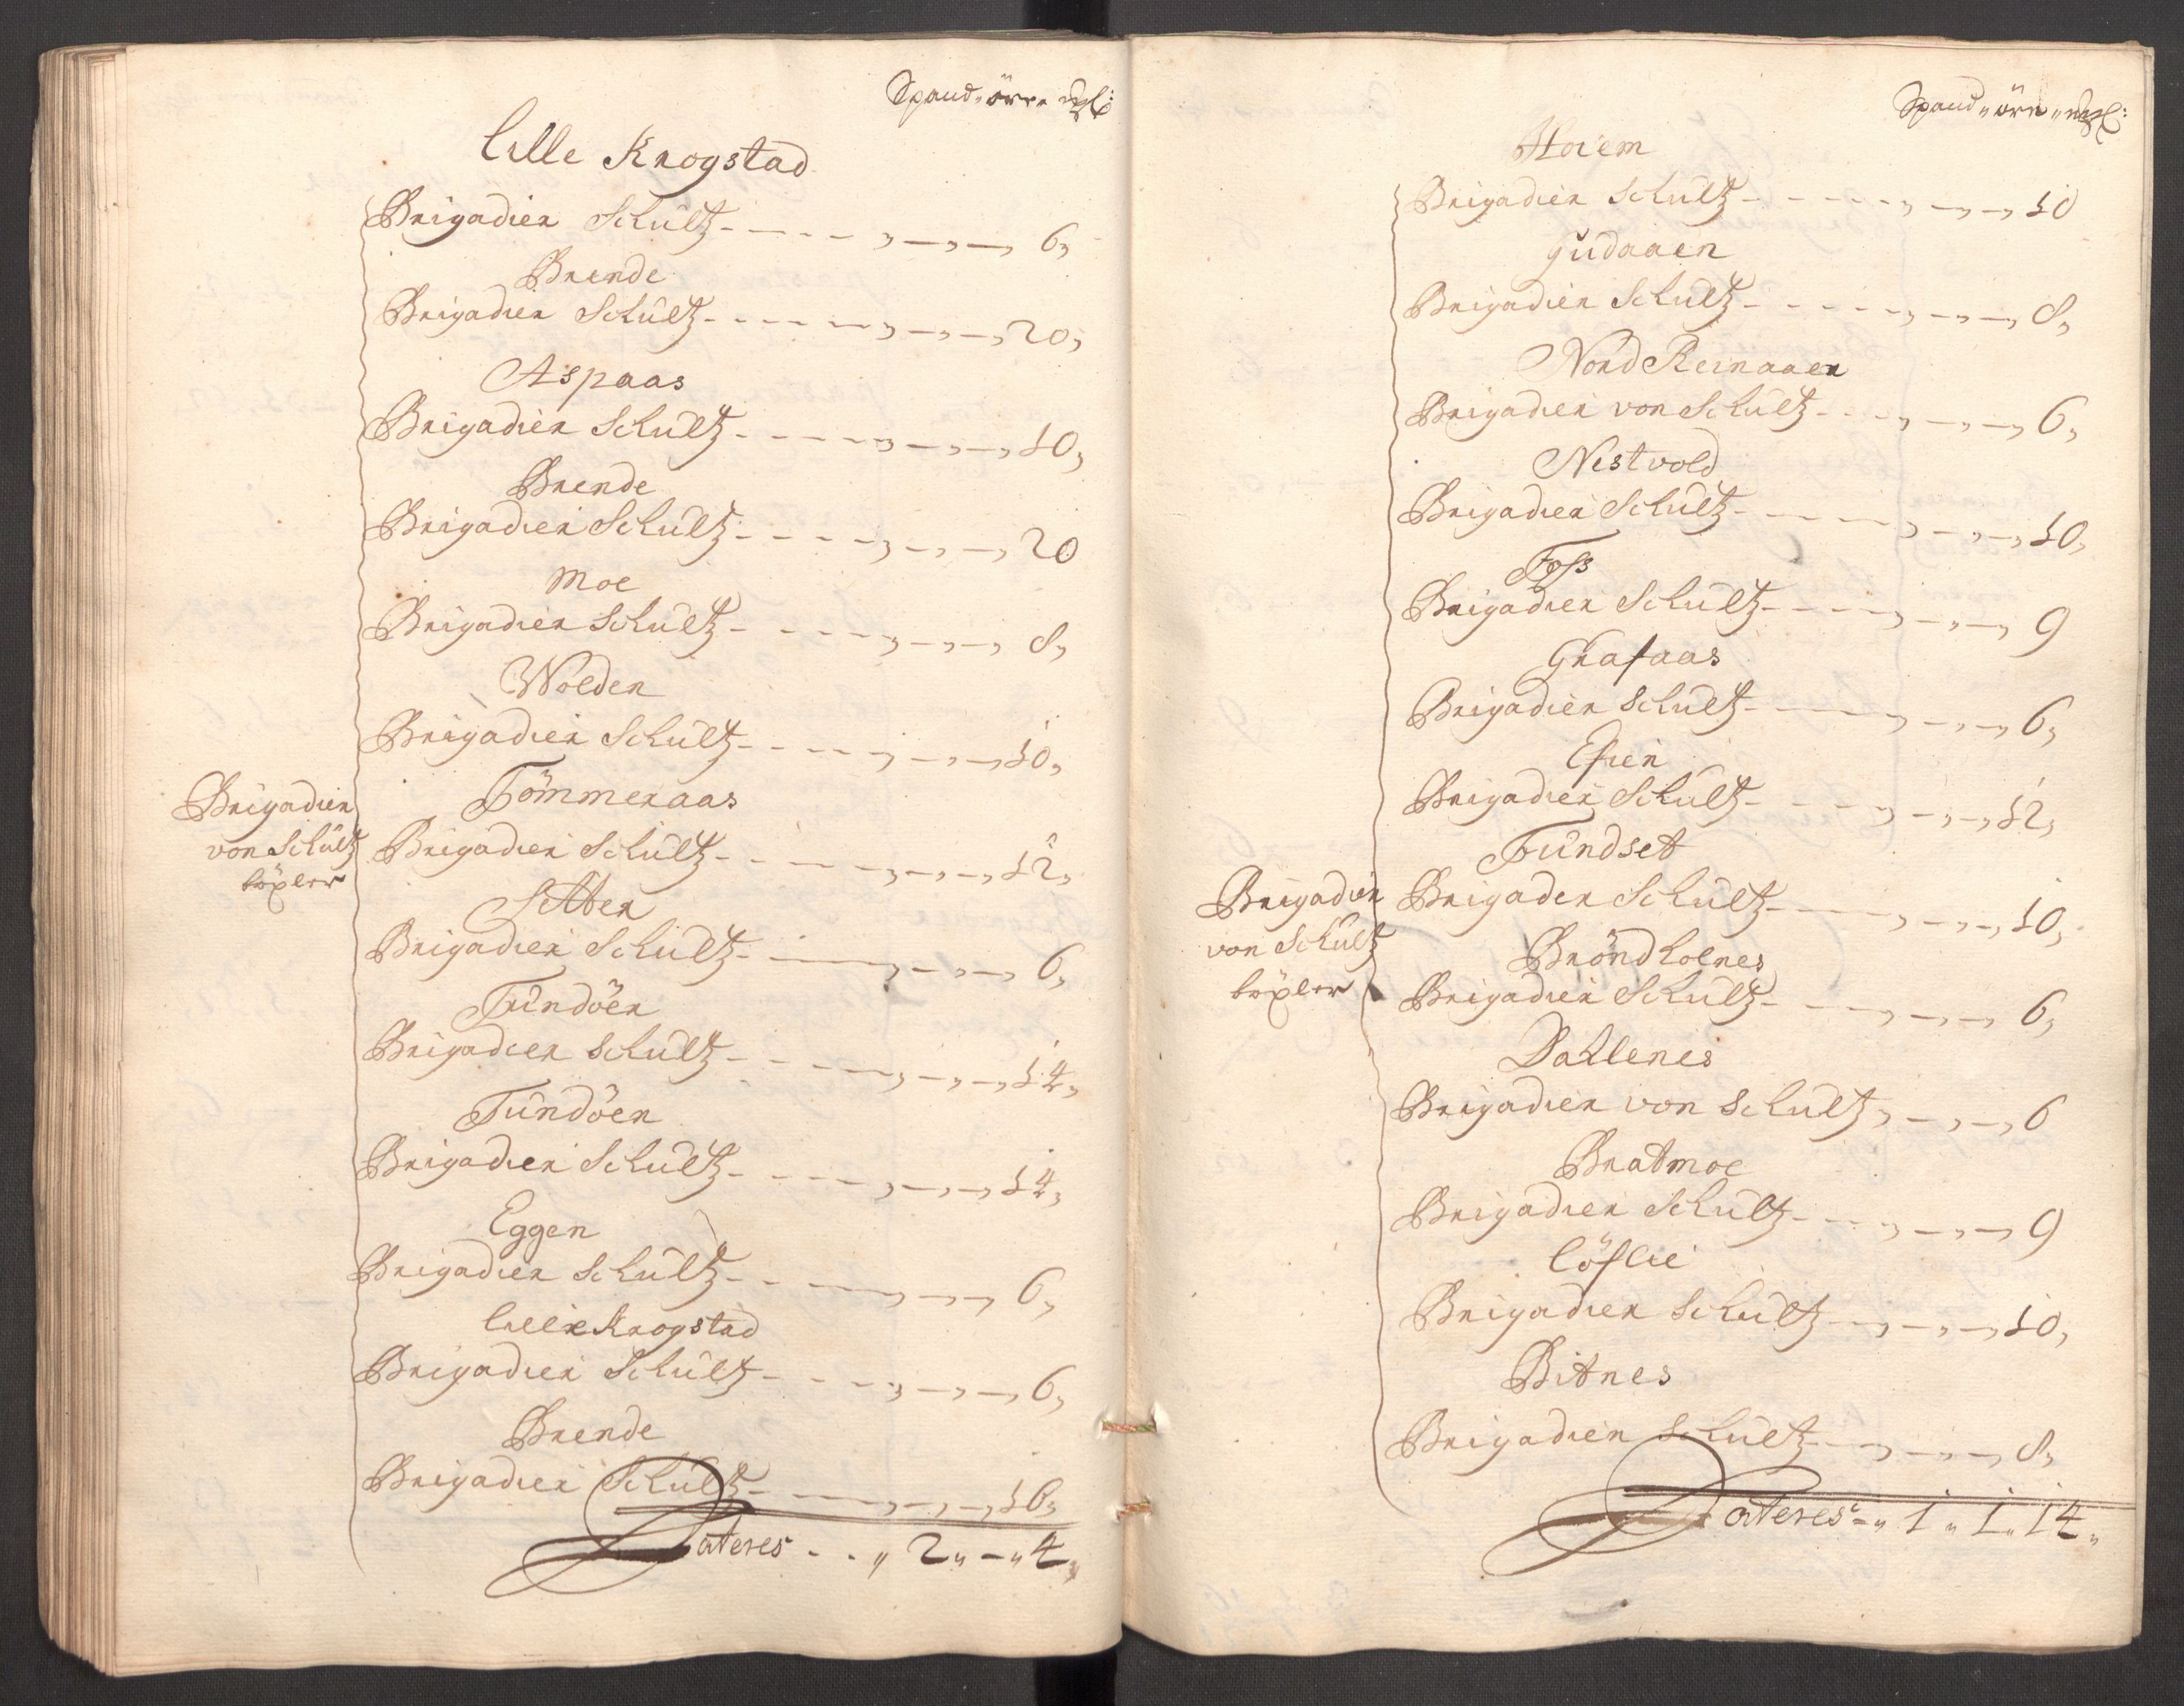 Spand „ örr „ mkl:
Lille Krogstad
Brigadier Schultz - - - - - , — „ — „ 6,
Brende
Brigadier Schultz - - - - - „ — „ — „ 20,
Aspaas
Brigadier Schultz - - - - - „ — „ — „ 10,
Brende
Brigadier Schultz - - - - - „ — „ — „ 20
Moe
Brigadier Schultz - - - - - „ — „ — „ 8,
Wolden
Brigadier Schultz - - - - - „ — „ — „ 10,
Tömmeraas
Brigadier Schultz - - - - - „ — „ — „ 12,
Setter
Brigadier Schultz - - - - - „ — „ — „ 6,
Tundöen
Brigadier Schultz - - - - - „ — „ — „ 14,
Tundöen
Brigadier Schultz - - - - - „ — „ — „ 14,
Eggen
Brigadier Schultz - - - - - „ — „ — „ 6,
Lille Krogstad
Brigadier Schultz - - - - - „ — „ — „ 6,
Brende
Brigadier Schultz - - - - - „ — „ — „ 16,
Lateres - - „ 2 „ - „ 4 „
Brigadier
von Schultz
böxler
Spand „ örr „ mkl:
Hoiem
Brigadier Schultz - - - - - „ — „ — „ 10
Gudaaen
Brigadier Schultz - - - - - „ — „ — „ 8,
Nord Reinaaen
Brigadier von Schultz - - - „ — „ — „ 6,
Nestvold
Brigadier Schultz - - - - - „ — „ — „ 10,
Foss
Brigadier Schultz - - - - - „ — „ — „ 9
Grafaas
Brigadier Schultz - - - - - „ — „ — „ 6,
Efien
Brigadier Schultz - - - - - „ — „ — „ 12,
Fundset
Brigader Schultz - - - - - „ — „ — „ 10,
Bröndholnes
Brigadier Schultz - - - - - „ — „ — „ 6,
Dahlenes
Brigadier von Schultz „ — „ — „ 6
Bratmoe
Brigadier Schultz - - - - „ — „ — „ 9
Löflie
Brigadier Schultz - - - „ — „ — „ 10,
Bitnes
Brigadier Schultz - - - „ — „ — „ 8,
Lateres - „ 1 „ 1 „ 14 „
Brigadier
von Schultz
böxler